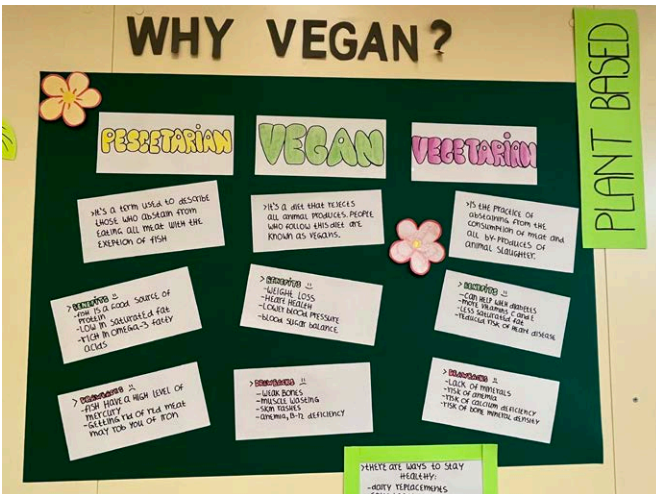 WHY VEGAN?
PLANT BASED
PESCETARIAN
>It's a term used to describe
those who abstain from
eating all meat with the
exeption of fish
>BENEFITS
-fish is a good source of
protein
-LOW IN saturated fat
-rich in omega-3 fatty
acids
>DRAWBACKS
-fish have a high level of
mercury
-Getting rid of red meat
may rob you of iron
VEGAN
>It's a diet that rejects
all animal products. People
who follow this diet are
known as vegans.
>BENEFITS
-WEIGHT LOSS
-Heart Health
-Lower blood pressure
-blood sugar balance
>DRAWBACKS
-weak bones
-muscle wasting
-skin rashes
-anemia, B-12 deficiency
VEGETARIAN
>Is the practice of
abstaining from the
consumption of meat and
all by-products of
animal slaughter.
>BENEFITS
-can help with diabetes
-more vitamins C and E
-Less saturated fat
-reduced risk of heart disease
>DRAWBACKS
-Lack of minerals
-risk of anemia
-risk of calcium deficiency
-risk of bone mineral density
>there are ways to stay
healthy:
-dairy replacements